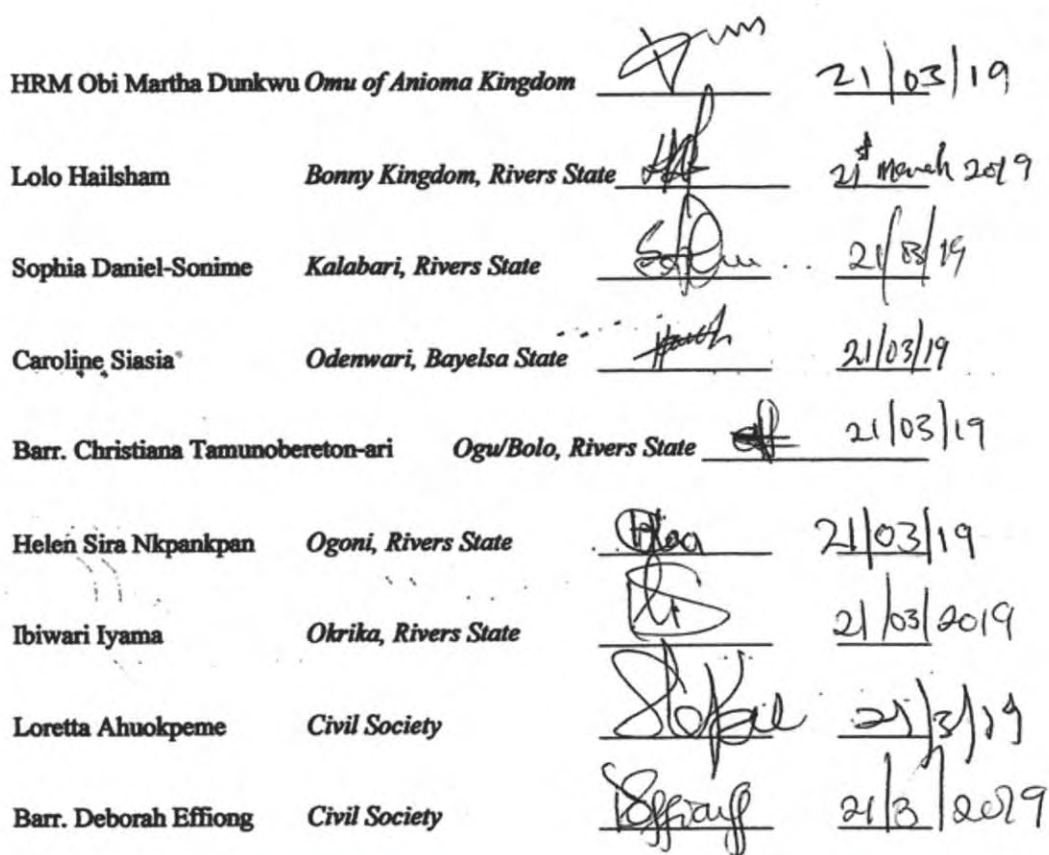 HRM Obi Martha Dunkwu Omu of Anioma Kingdom 21/03/19
Lolo Hailsham Bonny Kingdom, Rivers State 21st March 2019
Sophia Daniel-Sonime Kalabari, Rivers State 21/03/19
Caroline Siasia Odenwari, Bayelsa State 21/03/19
Barr. Christiana Tamunobereton-ari Ogu/Bolo, Rivers State 21/03/19
Helen Sira Nkpankpan Ogoni, Rivers State 21/03/19
Ibiwari Iyama Okrika, Rivers State 21/03/2019
Loretta Ahuokpeme Civil Society 21/3/19
Barr. Deborah Effiong Civil Society Effiong 21/3/2019